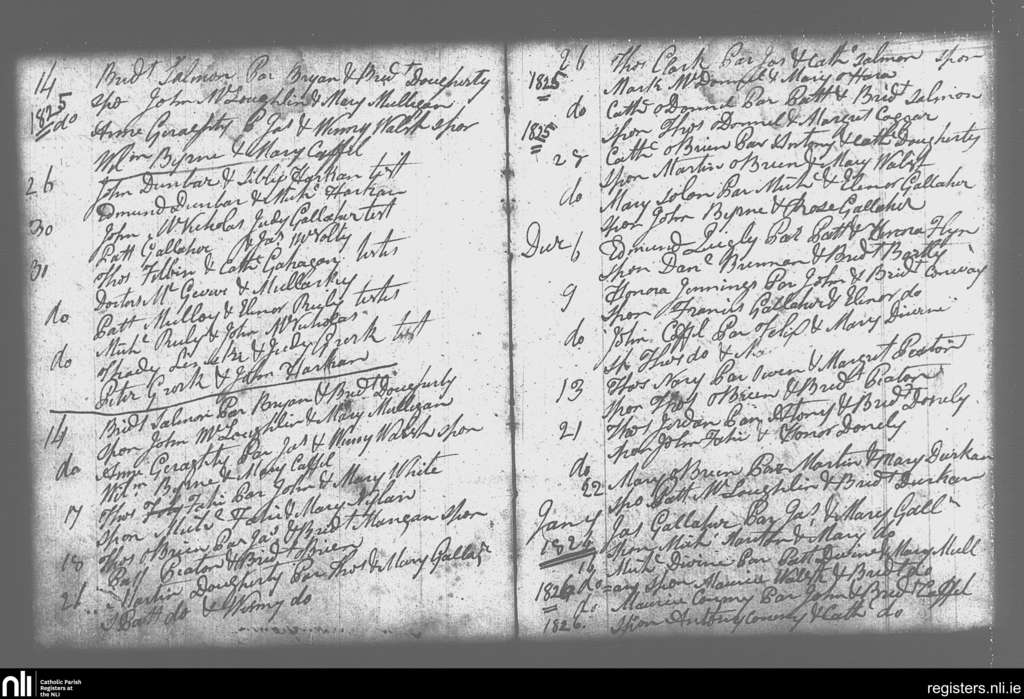 14 Bridt Salmon Par Bryan & Bridt Dougherty
1825 spo John McLoughlin & Mary Mulligan
do Anne Geraghty P Jas & Winny Walsh spor
Wilm Byrne & Mary Caffel
26 John Dunbar & Sibby Harkan test
Edmund Dunbar & Michl Harkan
30 John McNicholas Judy Gallaher test
Patt Gallaher & Jas McNolty
31 Thos Filbin & Cathe Gahagan tests
Doctors Mc & Mullarkey
do Patt Mulloy & Elinor Ruily tests
Michl Ruily & John McNicholas
do & Judy Grork test
Peter Grork & John Harkan
14 Bridt Salmon Par Bryan & Bridt Dougherty
spon John McLoughlin & Mary Mulligan
do Anne Geraghty Par Jas & Winny Walsh spon
Wilm Byrne & Mary Caffel
17 Thos Fahi Par John & Mary White
spon Michl Fahi & Mary
18 Thos OBrien Par Jas & Bridt Mangan spon
Patt Beaton & Bridt OBrien
26 Martin Dougherty Par Thos & Mary Gallar
Patt do & Winny do
26 Thos Clark Par Jas & Cathe Salmon spon
1825 Mark McDonnel & Mary oHara
do Cathe oDonnel Par Patt & Bridt Salmon
1825 spon Thos oDonnel & Margret
28 Cathe oBrien Par Antony & Cath Dougherty
spon Martin oBrien & Mary Walsh
do Mary Par Michl & Elenor Gallaher
spon John Byrne & Rose Gallaher
6 Edmund Par Patt & Honora Flyn
spon Danl Brennan & Bridt
9 Honora Jennings Par John & Bridt Conway
spon Francis Gallaher & Elinor do
do John Caffel Par & Mary Divine
Thos do &
13 Thos Nory Par Owen & Margret Beaton
spon Thos OBrien & Bridt Beaton
21 Thos Jordan Par Antony & Bridt Donely
spon John Fahi & Honor Donely
do Mary oBrien Par Martin & Mary Durkan
22 spo Patt McLoughlin & Bridt Durkan
Jany Jas Gallaher Par Jas & Mary Gall
1826 spon Michl & Mary do
Michl Divine Par Patt Divine & Mary Mull
1826 do =any spon Maurice Walsh & Bridt do
do Maurice Conway Par John & Bridt Caffel
1826 spon Antony Conway & Cath do
nli
Catholic Parish
Registers at
the NLI
registers.nli.ie